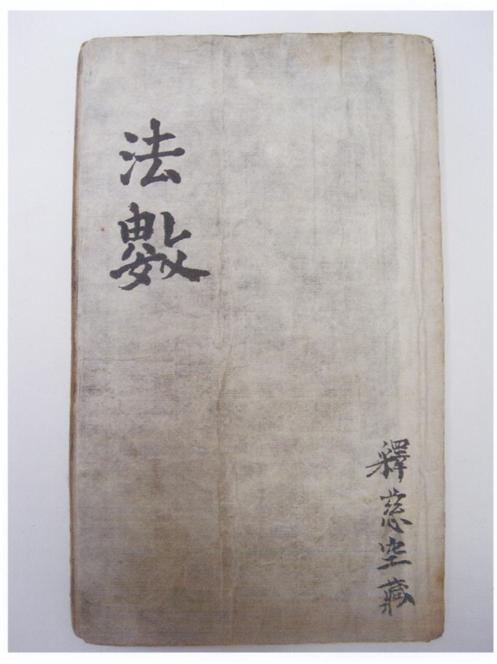 法數
釋慈空藏